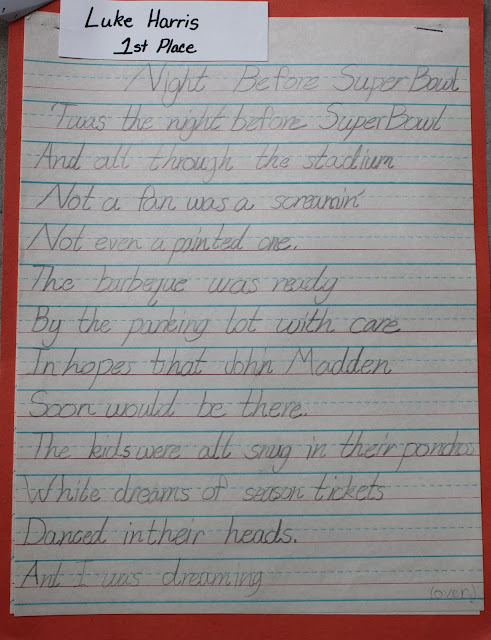 Luke Harris
1st Place
Night Before SuperBowl
'Twas the night before SuperBowl
And all through the stadium
Not a fan was a screamin'
Not even a painted one.
The barbeque was ready
By the parking lot with care
In hopes that John Madden
Soon would be there.
The kids were all snug in their ponchos
While dreams of season tickets
Danced in their heads.
Ant I was dreaming
(over)